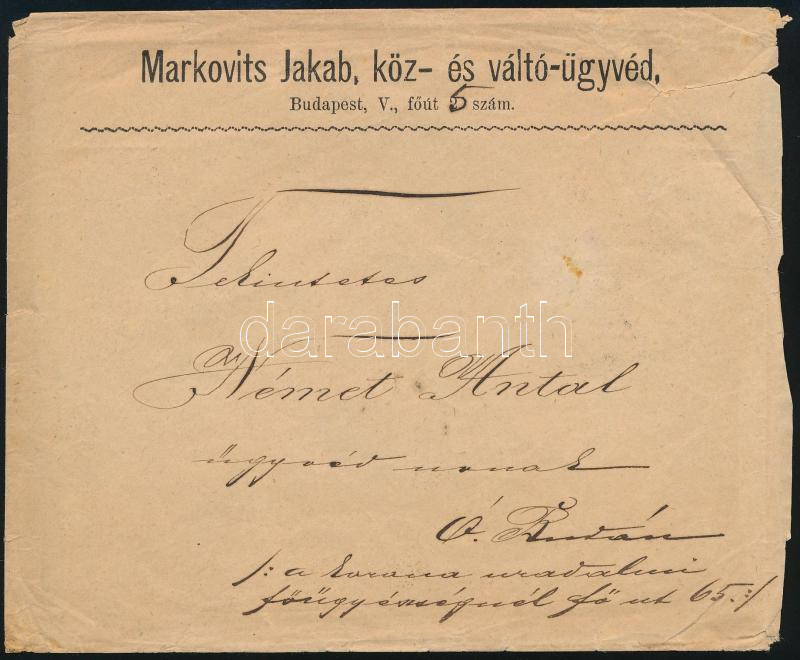 Markovits Jakab, köz- és váltó-ügyvéd,
Budapest, V., főút 5 szám.
Tekintetes
darabanth
Német Antal
ügyvéd urnak
Ó. Budán
/: a korona uradalmi
főügyészségnél fő ut 65. :/